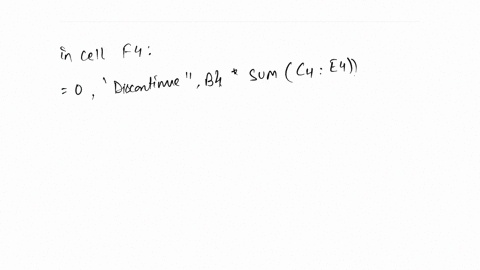 in cell F4:
= 0, 'Discontinue", B4 * SUM (C4: E4))